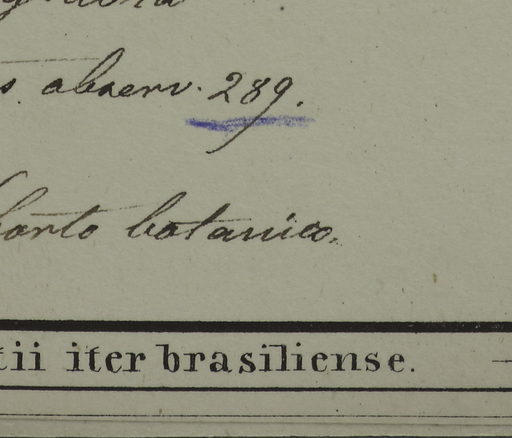 s. observ. 289.
horto botanico.
tii iter brasiliense.